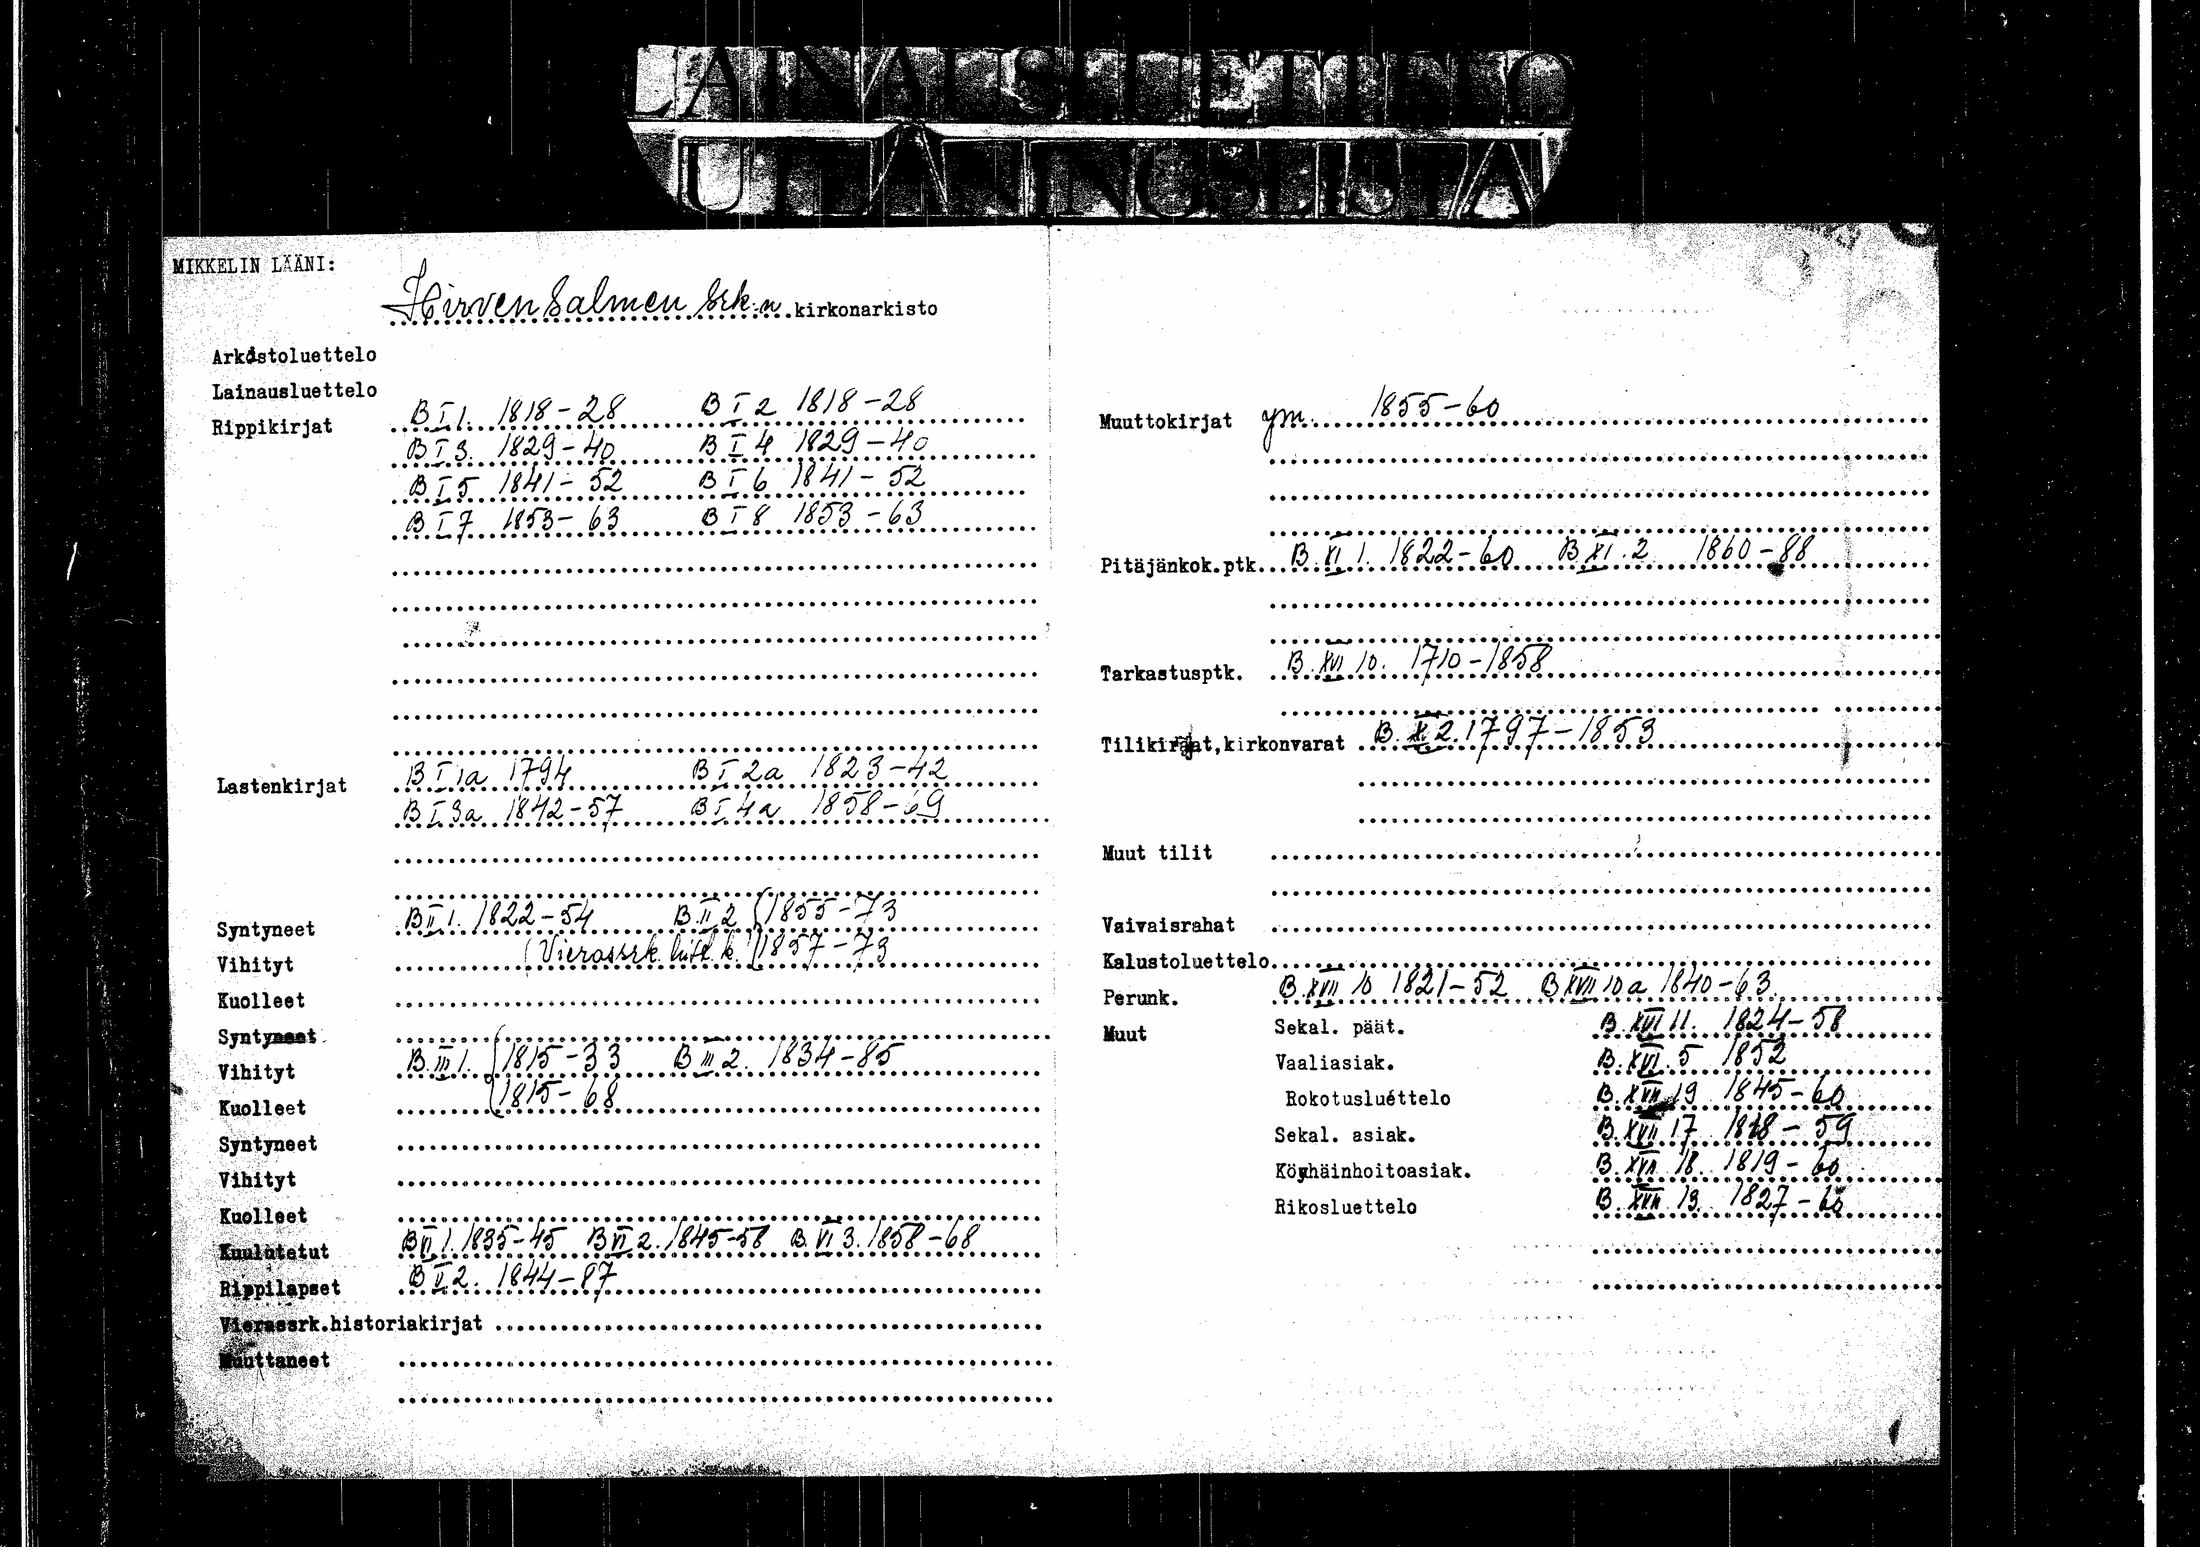 LAINAUSLUETTELO
UTLÅNINGSLISTA
MIKKELIN LÄÄNI:
Hirvensalmen srk:n kirkonarkisto
Arkistoluettelo
Lainausluettelo
Rippikirjat B I 1. 1818-28 B I 2 1818-28
B I 3. 1829-40 B I 4 1829-40
B I 5 1841-52 B I 6 1841-52
B I 7 1853-63 B I 8 1853-63
Lastenkirjat B I 1a 1794 B I 2a 1823-42
B I 3a 1842-57 B I 4a 1858-69
Syntyneet B II 1. 1822-54 B II 2 1855-73
Vihityt (Vierassrk. hist. k.) 1857-73
Kuolleet
Syntyneet
Vihityt B III 1. 1815-33 B III 2. 1834-85
Kuolleet 1815-68
Syntyneet
Vihityt
Kuolleet
Kuulutetut B VI 1. 1835-45 B VI 2. 1845-58 B VI 3. 1858-68
Rippilapset B V 2. 1844-87
Vierassrk.historiakirjat
Muuttaneet
Muuttokirjat ym. 1855-60
Pitäjänkok.ptk. B XI 1. 1822-60 B XI. 2 1860-88
Tarkastusptk. B. XVI 10. 1710-1858
Tilikirjat,kirkonvarat B. 2. 1797-1853
Muut tilit
Vaivaisrahat
Kalustoluettelo
Perunk. B. XVII 10 1821-52 B XVII 10a 1840-63
Muut Sekal. päät. B. XVI 11. 1824-58
Vaaliasiak. B. XVI. 5 1852
Rokotusluettelo B. XVII 19 1845-60
Sekal. asiak. B. XVII 17 1818-59
Köyhäinhoitoasiak. B. XVII 18. 1819-60
Rikosluettelo B. XVII 13. 1827-